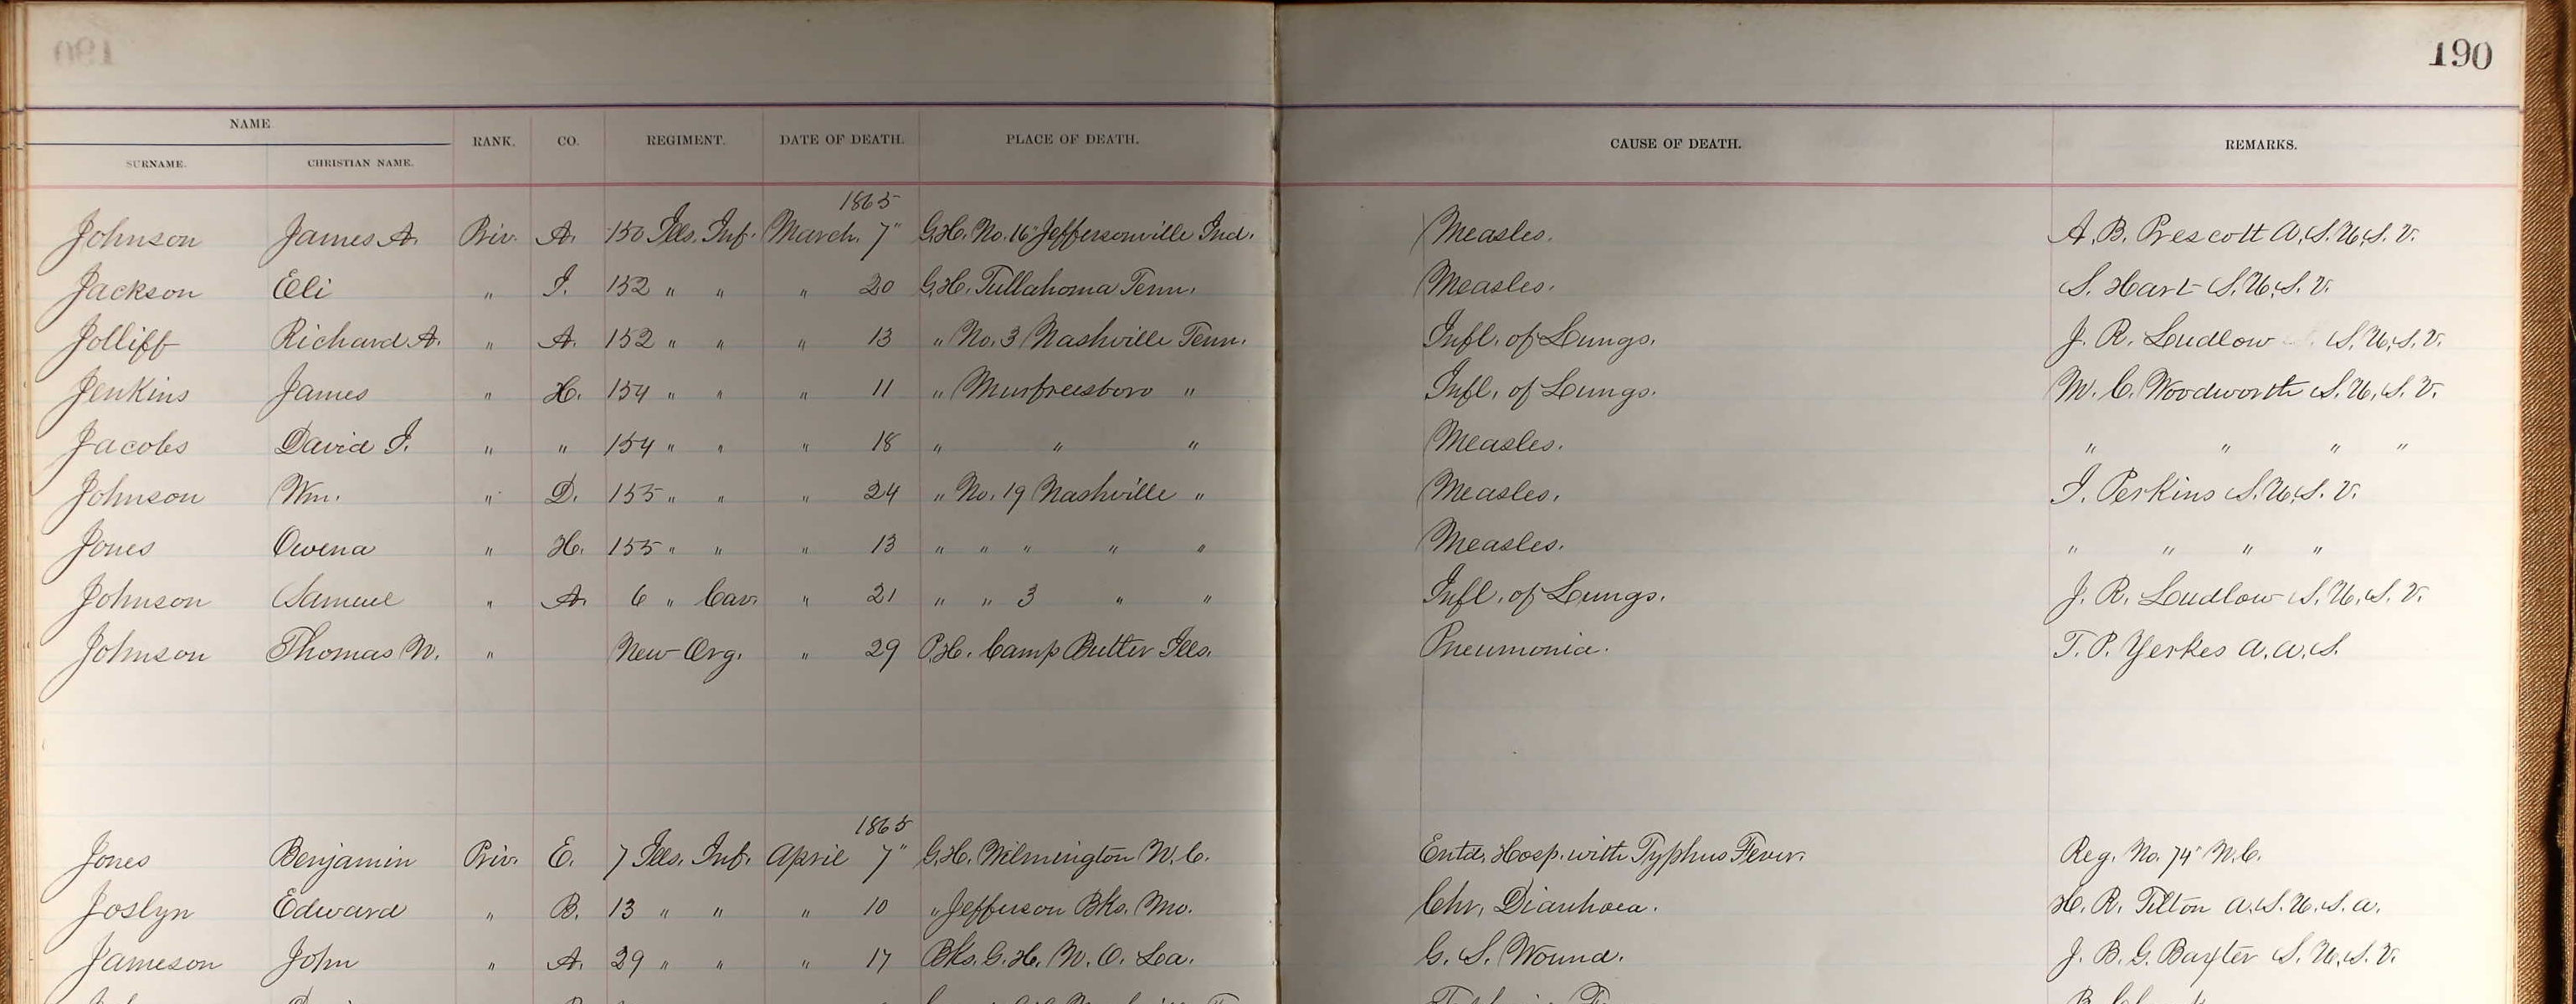 190
NAME. RANK. CO. REGIMENT. DATE OF DEATH. PLACE OF DEATH. CAUSE OF DEATH. REMARKS.
SURNAME. CHRISTIAN NAME.
1865
Johnson James A. Priv. A. 150 Ills. Inf. March 7" G.H. No. 16" Jeffersonville Ind. Measles. A. B. Prescott A.S.U.S.V.
Jackson Eli " I. 152 " " " 20 G.H. Tullahoma Tenn. Measles. S. Hart S.U.S.V.
Jolliff Richard A. " A. 152 " " " 13 " No. 3 Nashville Tenn. Infl. of Lungs. J. R. Ludlow S.U.S.V.
Jenkins James " H. 154 " " " 11 " Murfreesboro " Infl. of Lungs. M. C. Woodworth S.U.S.V.
Jacobs David I. " " 154 " " " 18 " " " Measles. " " " "
Johnson Wm. " D. 155 " " " 24 " No. 19 Nashville " Measles. I. Perkins S.U.S.V.
Jones Owena " H. 155 " " " 13 " " " " " Measles. " " " "
Johnson Samuel " A. 6 " Cav. " 21 " " 3 " " Infl. of Lungs. J. R. Ludlow S.U.S.V.
Johnson Thomas W. " New Org. " 29 P.H. Camp Butler Ills. Pneumonia. T. P. Yerkes A.A.S.
1865
Jones Benjamin Priv. E. 7 Ills. Inf. April 7" G.H. Wilmington N.C. Entd. Hosp. with Typhus Fever. Reg. No. 74" N.C.
Joslyn Edward " B. 13 " " " 10 " Jefferson Bks. Mo. Chr. Diarrhoea. H. R. Tilton A.S.U.S.A.
Jameson John " A. 29 " " " 17 Bks. G.H. N.O. La. G. S. Wound. J. B. G. Baxter S.U.S.V.